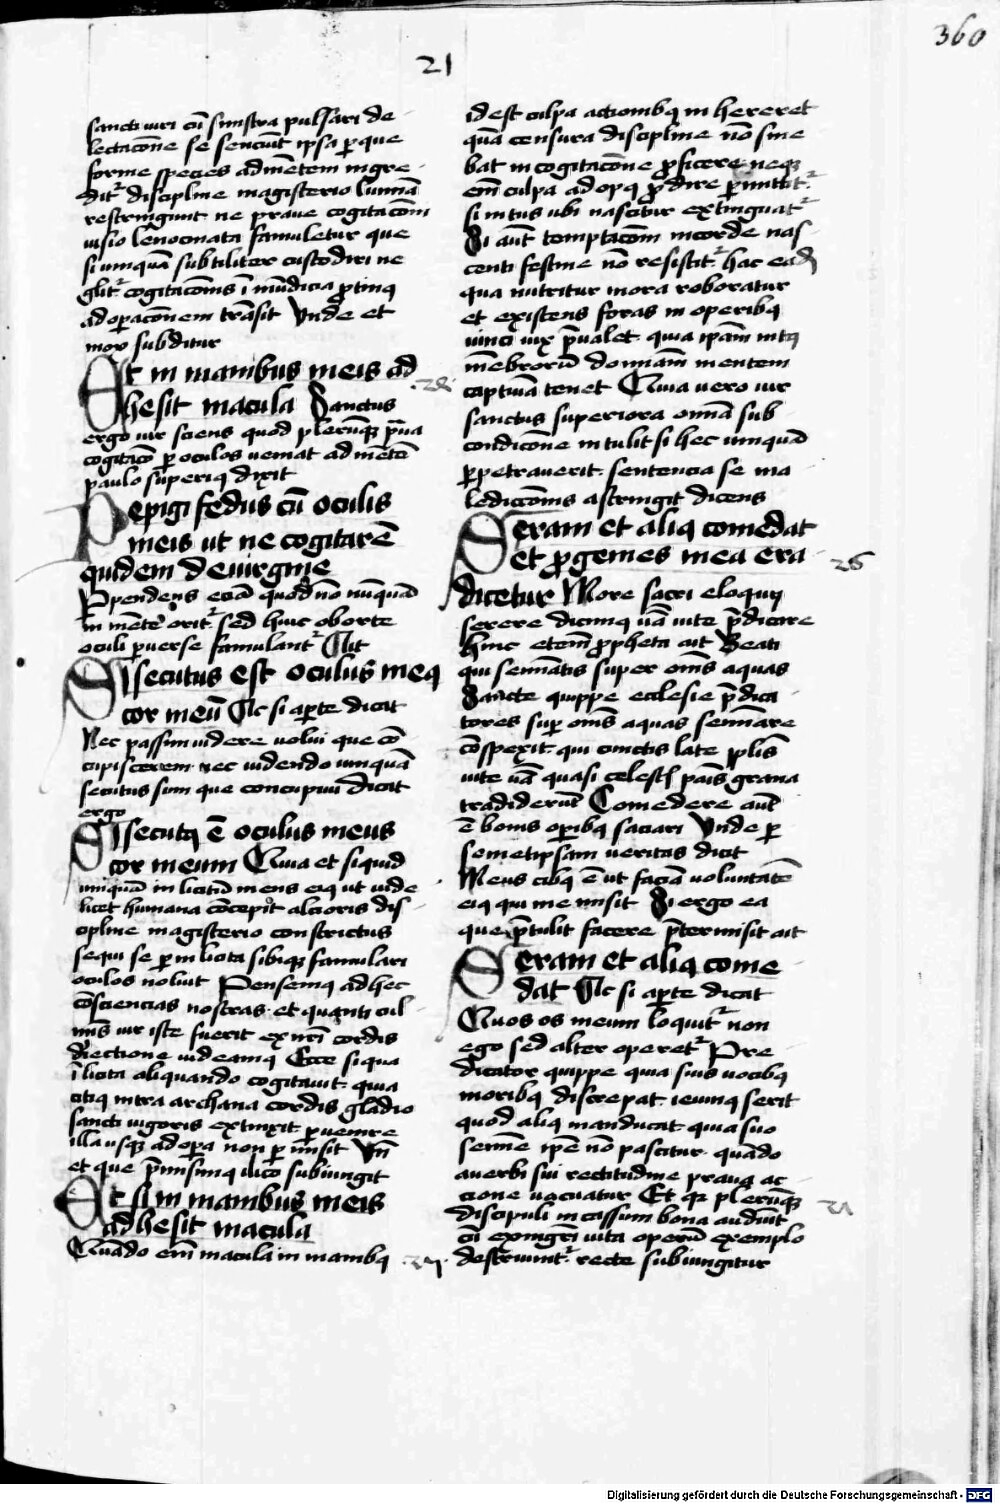 360
21
sancti viri cū sinistra pulsari de-
lectacōne se senciūt ipsa p̱ que
forme species ad mētem ingre-
dit᷑ discipline magisterio luminā
restringunt ne praue cogitacōni
visio lenocinata famuletur que
si unquā subtiliter custodiri ne
glit᷑ cogitacōnis īmūdicia ꝓtinꝰ
ad operacōnem trāsit Vnde et
mox subditur
Et in manibus meis ad
hesit macula Sanctus
ergo vir sciens quod plerūqꝫ praua
cogitacō p̱ oculos veniat ad mētē
paulo superiꝰ dixit
Pepigi fedus cū oculis
meis ut ne cogitarē
quidem de virgine
Perpendens eciā quod nō nūquā
in mēte orit᷑ sed huic oborte
oculi puerse famulant᷑ Ait
Si secutus est oculus meꝰ
cor meū Ac si aperte dicat
Nec passim videre volui que cō
cupiscerem nec videndo unquā
secutus sum que concupivi dicat
ergo
Si secutꝰ ē oculus meus
cor meum Quia et si quid
unquā inlicitū mens eiꝰ ut vide
licet humana cōcepit alcioris dis-
cipline magisterio constrictus
sequi se p̱ inlicita sibiqꝫ famulari
oculos noluit Pensemꝰ ad hec
cōsciencias nostras et quanti cul-
minis vir iste fuerit ex nr̄i cordis
directione videamꝰ Ecce si qua
īlicita aliquando cogitavit quia
citiꝰ intra archana cordis gladio
sancti vigoris extinxit puenire
illa usqꝫ ad opera non pmisit Vn̄
et que p̄misimꝰ ilico subiungit
Et si in manibus meis
adhesit macula
Quādo em̄ macula in manibꝰ
id est culpa actionibꝰ inhereret
quā censura discipline nō sine
bat in cogitacōne ꝓficere neqꝫ
em̄ culpa ad opꝰ ꝓdire pmittit᷑
si intus ubi nascitur extinguat᷑
Si aūt temptacōni in corde nas-
centi festine nō resistit᷑ hac eadē
qua nutritur mora roboratur
et existens foras in operibꝰ
vinci vix p̄ualet quia ip̄am intꝰ
mēbrorū dominam mentem
captivā tenet Quia vero vir
sanctus superiora omnia sub
condicōne intulit si hec unquā
p̱petraverit sentencia se ma-
ledictionis astringit dicens
28
25
Seram et aliꝰ comedat
et ꝓgenies mea era-
dicetur More sacri eloquii
26
serere dicimꝰ v̄ba vite p̄dicare
hinc etenim ꝓpheta ait Beati
qui seminatis super om̄s aquas
Sancte quippe ecclesie p̄dica-
tores sup̱ om̄s aquas seminare
cōspexit qui cunctis late pplis
vite v̄ba quasi celestis panis grana
tradiderunt Comedere aut
ē bonis operibꝰ saciari Vnde p̱
semetipsam veritas dicit
Meus cibꝰ ē ut faciā voluntatē
eiꝰ qui me misit Si ergo ea
que p̄tulit facere p̄termisit ait
Seram et aliꝰ come-
dat Ac si aperte dicat
Quos os meum loquit᷑ non
ego sed alter operet᷑ Pre-
dicator quippe quia suis vocibꝰ
moribꝰ discrepat ieiunꝰ serit
quod aliꝰ manducat quia suo
semine ipse nō pascitur quādo
a verbi sui rectitudine prava ac-
cione vacuatur Et qꝫ plerūqꝫ
discipuli incassum bona audiūt
cū exigēti vita operū exemplo
destruunt᷑ recte subiungitur
Digitalisierung gefördert durch die Deutsche Forschungsgemeinschaft - DFG